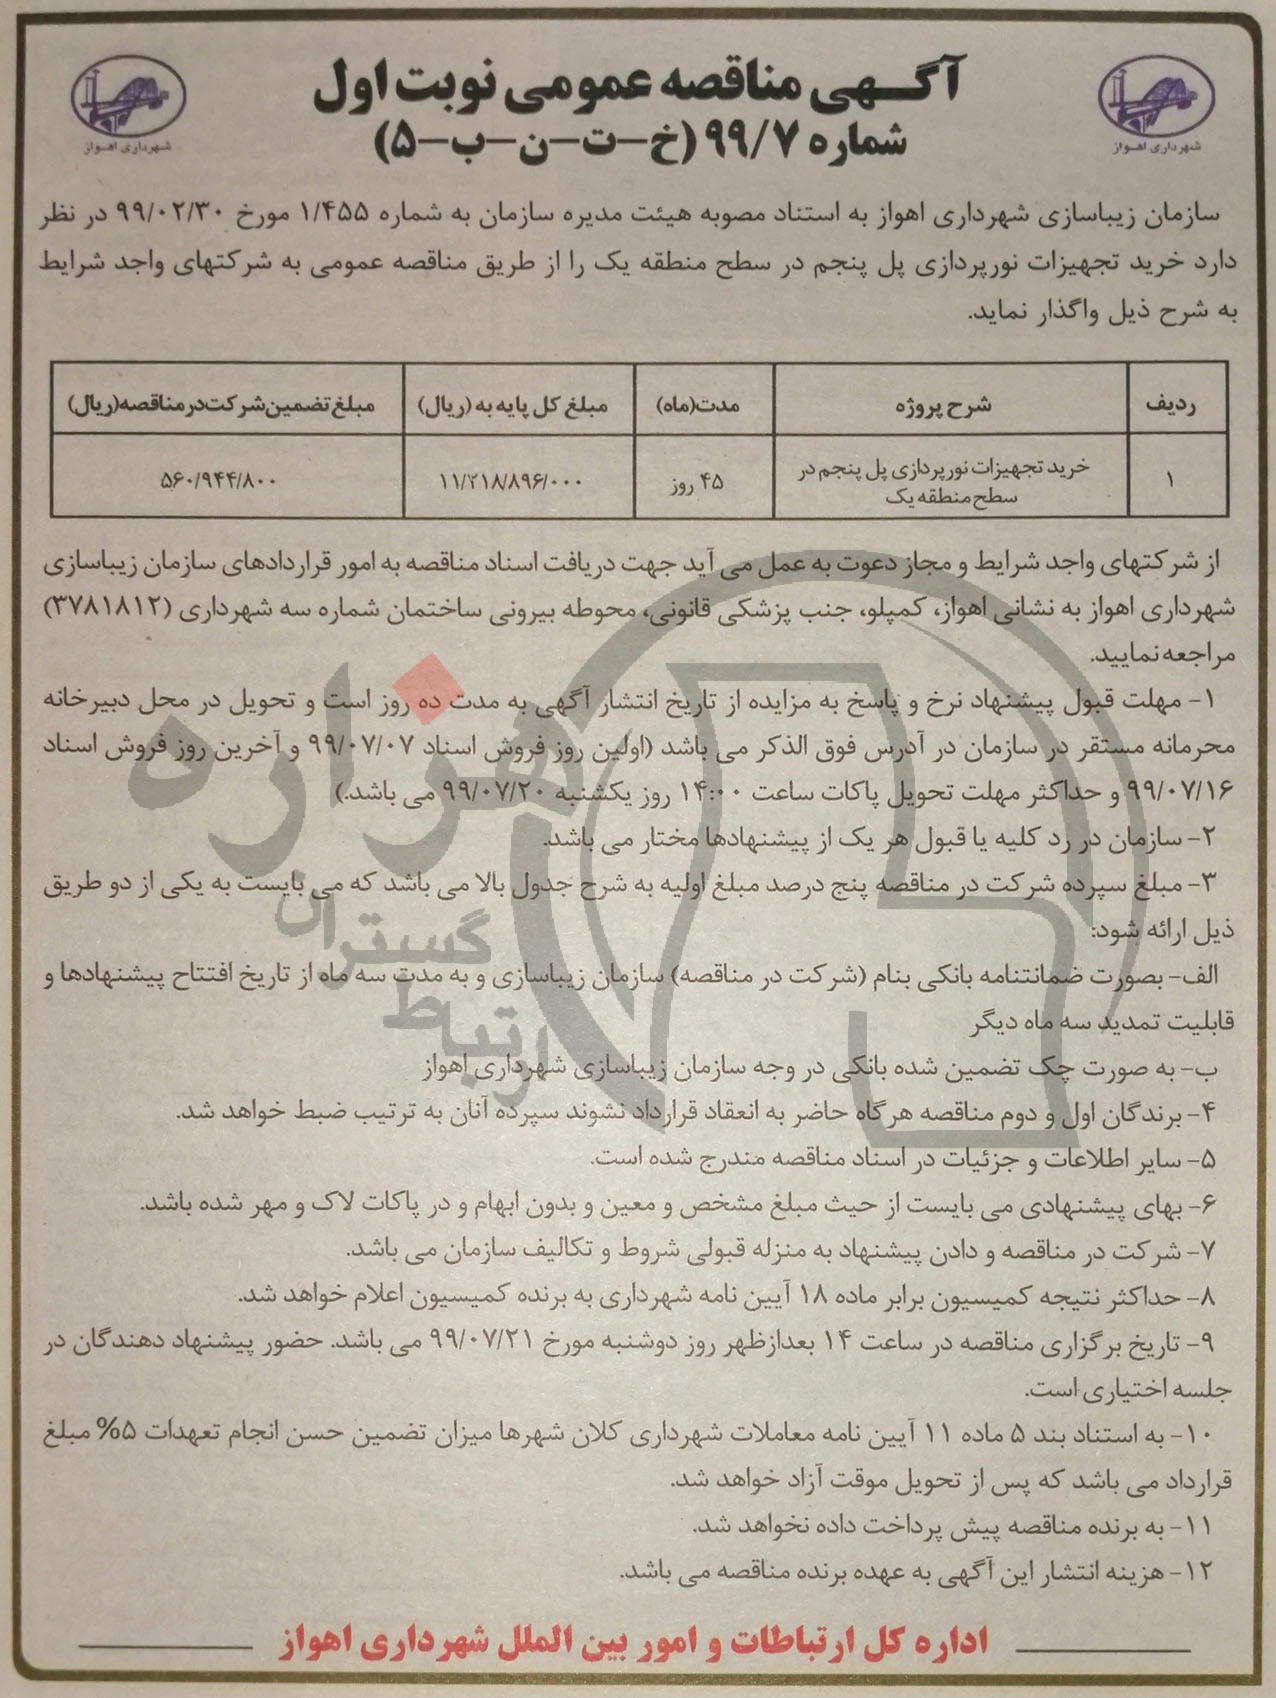 آگهی مناقصه عمومی نوبت اول
شماره ۹۹/۷ (خ-ت-ن-ب-۵)
شهرداری اهواز
شهرداری اهواز
سازمان زیباسازی شهرداری اهواز به استناد مصوبه هیئت مدیره سازمان به شماره ۱/۴۵۵ مورخ ۹۹/۰۲/۳۰ در نظر
دارد خرید تجهیزات نورپردازی پل پنجم در سطح منطقه یک را از طریق مناقصه عمومی به شرکتهای واجد شرایط
به شرح ذیل واگذار نماید.
ردیف شرح پروژه مدت(ماه) مبلغ کل پایه به (ریال) مبلغ تضمین شرکت در مناقصه(ریال)
۱ خرید تجهیزات نورپردازی پل پنجم در سطح منطقه یک ۴۵ روز ۱۱/۲۱۸/۸۹۶/۰۰۰ ۵۶۰/۹۴۴/۸۰۰
از شرکتهای واجد شرایط و مجاز دعوت به عمل می آید جهت دریافت اسناد مناقصه به امور قراردادهای سازمان زیباسازی
شهرداری اهواز به نشانی اهواز، کمپلو، جنب پزشکی قانونی، محوطه بیرونی ساختمان شماره سه شهرداری (۳۷۸۱۸۱۲)
مراجعه نمایید.
۱- مهلت قبول پیشنهاد نرخ و پاسخ به مزایده از تاریخ انتشار آگهی به مدت ده روز است و تحویل در محل دبیرخانه
محرمانه مستقر در سازمان در آدرس فوق الذکر می باشد (اولین روز فروش اسناد ۹۹/۰۷/۰۷ و آخرین روز فروش اسناد
۹۹/۰۷/۱۶ و حداکثر مهلت تحویل پاکات ساعت ۱۴:۰۰ روز یکشنبه ۹۹/۰۷/۲۰ می باشد.)
۲- سازمان در رد کلیه یا قبول هر یک از پیشنهادها مختار می باشد.
۳- مبلغ سپرده شرکت در مناقصه پنج درصد مبلغ اولیه به شرح جدول بالا می باشد که می بایست به یکی از دو طریق
ذیل ارائه شود:
الف- بصورت ضمانتنامه بانکی بنام (شرکت در مناقصه) سازمان زیباسازی و به مدت سه ماه از تاریخ افتتاح پیشنهادها و
قابلیت تمدید سه ماه دیگر
ب- به صورت چک تضمین شده بانکی در وجه سازمان زیباسازی شهرداری اهواز
۴- برندگان اول و دوم مناقصه هرگاه حاضر به انعقاد قرارداد نشوند سپرده آنان به ترتیب ضبط خواهد شد.
۵- سایر اطلاعات و جزئیات در اسناد مناقصه مندرج شده است.
۶- بهای پیشنهادی می بایست از حیث مبلغ مشخص و معین و بدون ابهام و در پاکات لاک و مهر شده باشد.
۷- شرکت در مناقصه و دادن پیشنهاد به منزله قبولی شروط و تکالیف سازمان می باشد.
۸- حداکثر نتیجه کمیسیون برابر ماده ۱۸ آیین نامه شهرداری به برنده کمیسیون اعلام خواهد شد.
۹- تاریخ برگزاری مناقصه در ساعت ۱۴ بعدازظهر روز دوشنبه مورخ ۹۹/۰۷/۲۱ می باشد. حضور پیشنهاد دهندگان در
جلسه اختیاری است.
۱۰- به استناد بند ۵ ماده ۱۱ آیین نامه معاملات شهرداری کلان شهرها میزان تضمین حسن انجام تعهدات ۵% مبلغ
قرارداد می باشد که پس از تحویل موقت آزاد خواهد شد.
۱۱- به برنده مناقصه پیش پرداخت داده نخواهد شد.
۱۲- هزینه انتشار این آگهی به عهده برنده مناقصه می باشد.
اداره کل ارتباطات و امور بین الملل شهرداری اهواز
هزاره
گستران
ارتباط